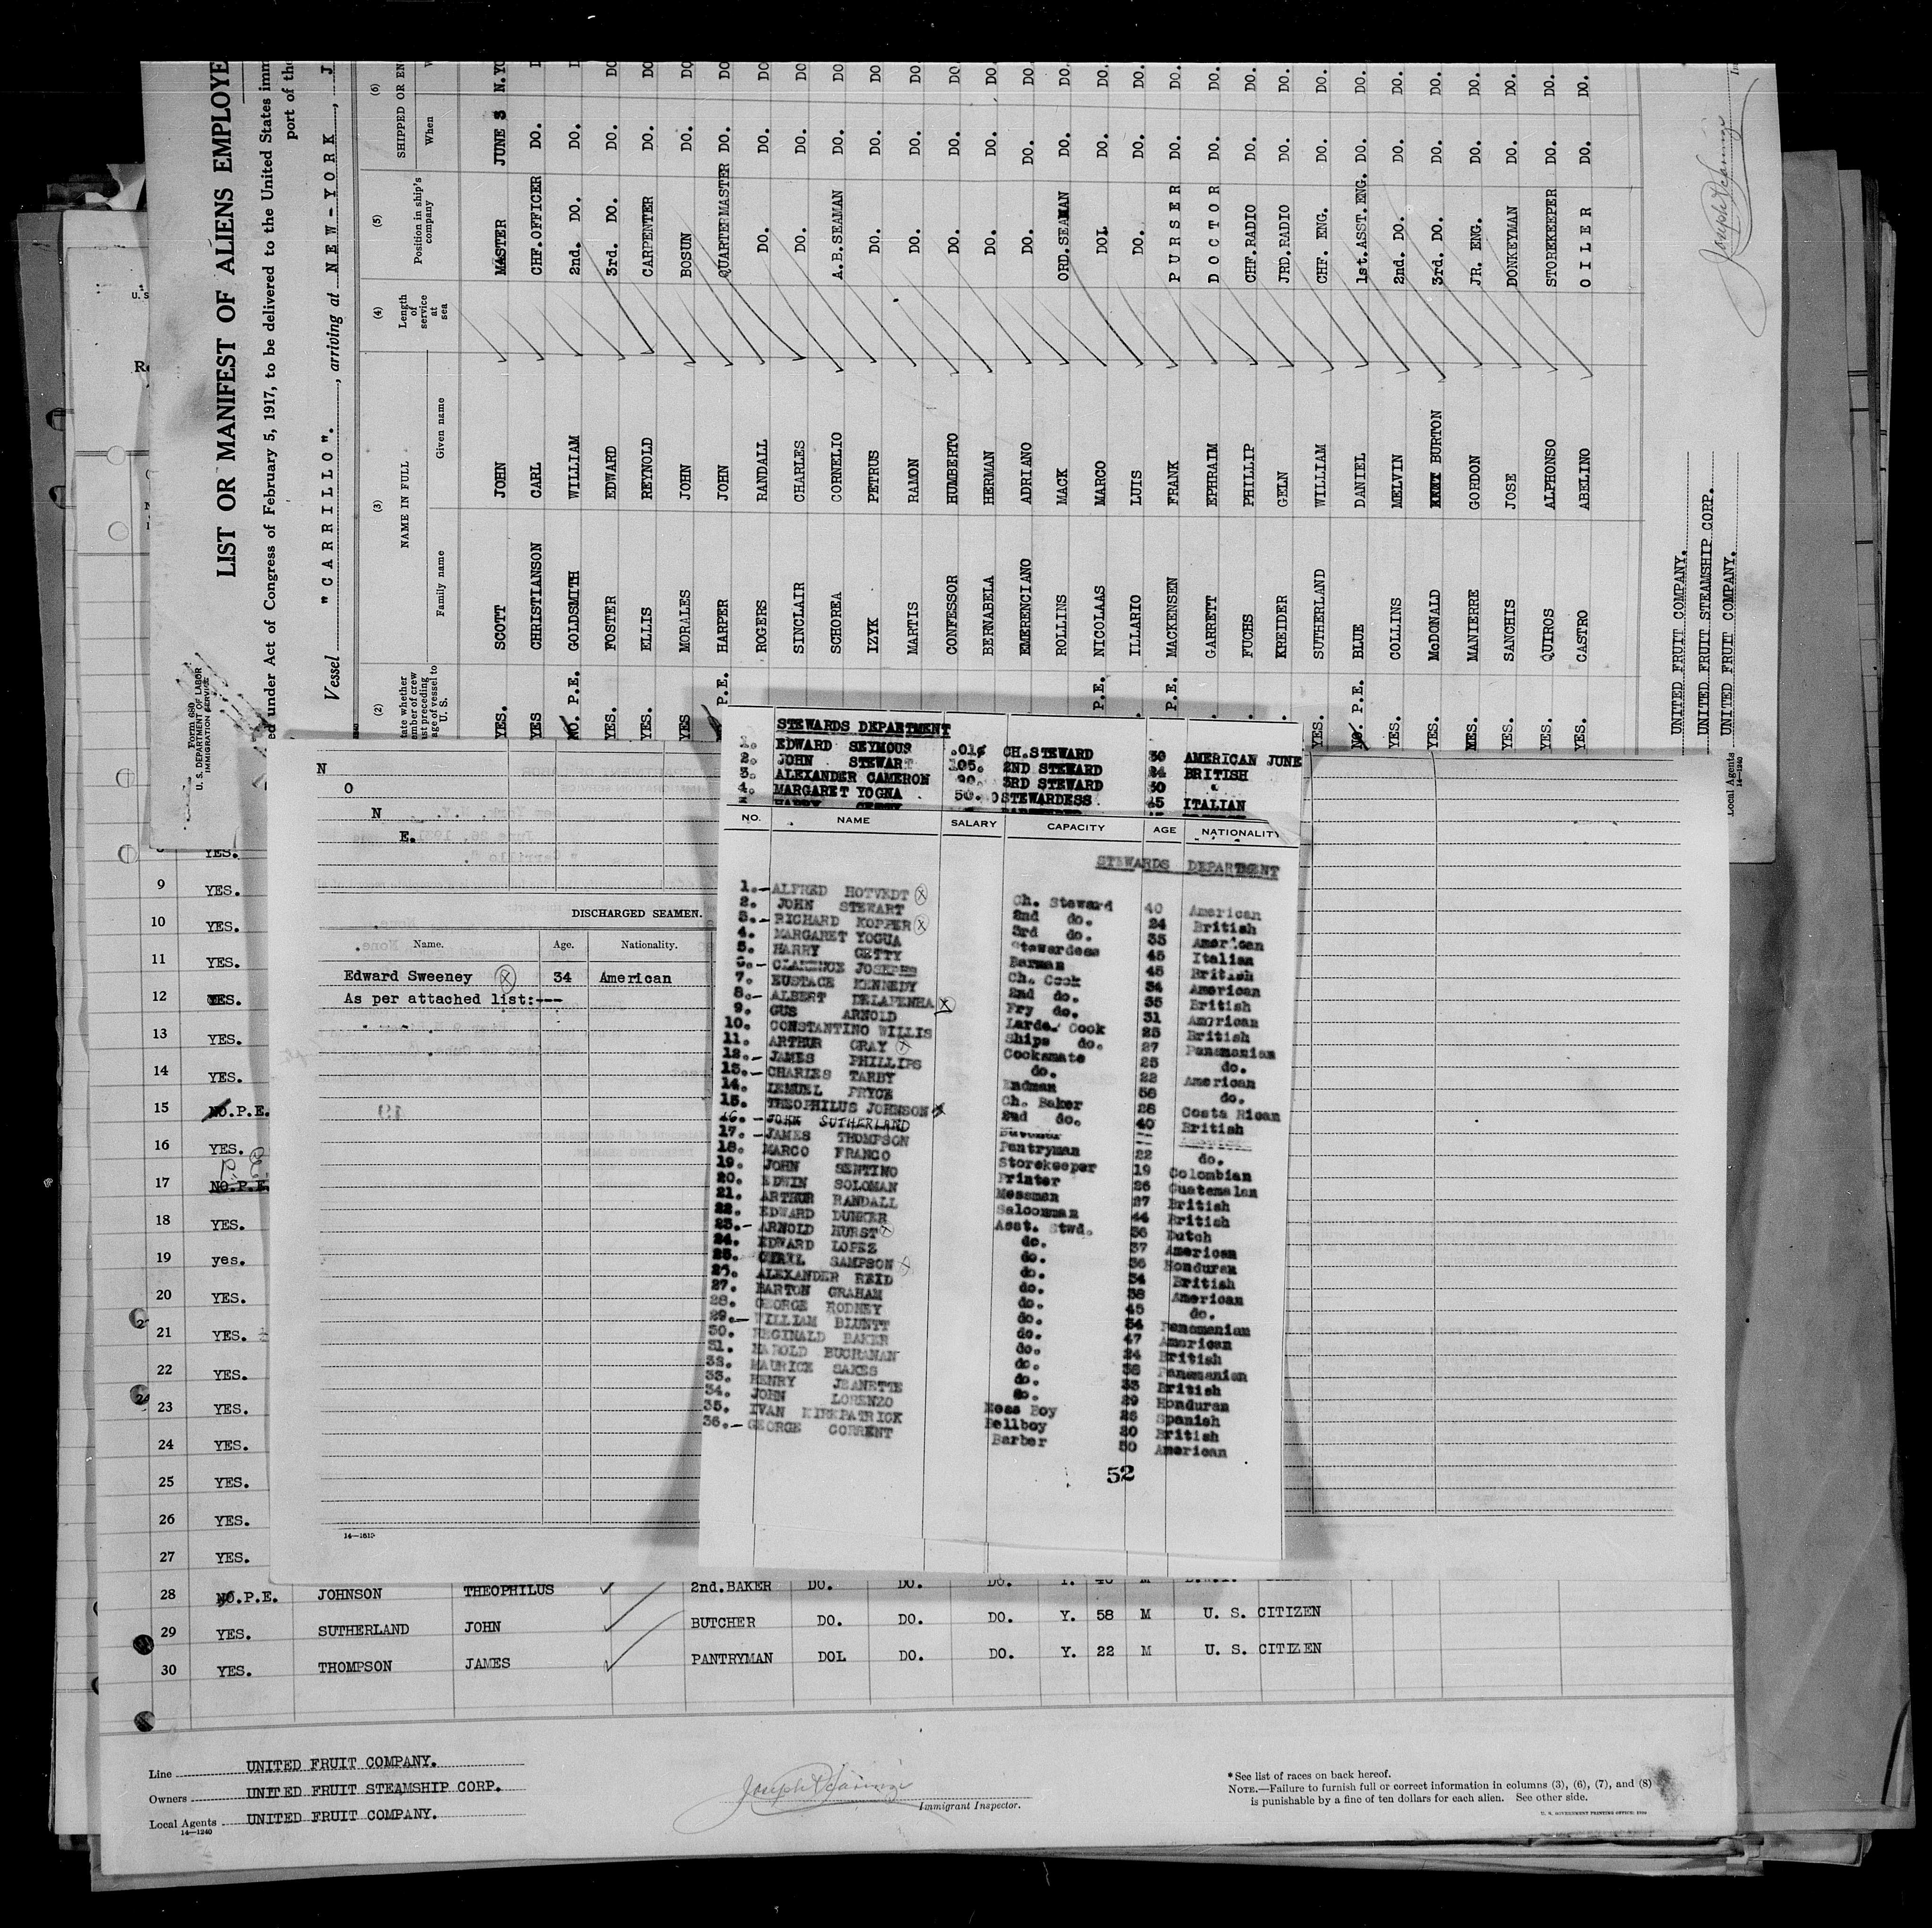 LIST OR MANIFEST OF ALIENS EMPLOYE
ed under Act of Congress of February 5, 1917, to be delivered to the United States imm
port of the
Form 680
U. S. DEPARTMENT OF LABOR
IMMIGRATION SERVICE
Vessel "CARRILLO". , arriving at NEW-YORK , J
(2) (3) (4) (5) (6)
NAME IN FULL SHIPPED OR EN
Family name Given name Length of service at sea Position in ship's company When
YES. SCOTT JOHN MASTER JUNE 3 N.YO
YES CHRISTIANSON CARL CHF.OFFICER DO. D
NO. P.E. GOLDSMITH WILLIAM 2nd. DO. DO. D
YES. FOSTER EDWARD 3rd. DO. DO. DO
YES. ELLIS REYNOLD CARPENTER DO. DO
YES MORALES JOHN BOSUN DO. DO
P.E. HARPER JOHN QUARTERMASTER DO. DO
ROGERS RANDALL DO. DO. DO
SINCLAIR CHARLES DO. DO. DO
SCHOREA CORNELIO A.B.SEAMAN DO. DO
IZYK PETRUS DO. DO. DO
MARTIS RAMON DO. DO. DO
CONFESSOR HUMBERTO DO. DO. DO
BERNABELA HERMAN DO. DO. DO
EMERENCIANO ADRIANO DO. DO. DO
ROLLINS MACK ORD.SEAMAN DO. DO.
P.E. NICOLAAS MARCO DOL DO. DO.
ILLARIO LUIS DO. DO. DO.
P.E. MACKENSEN FRANK PURSER DO. DO.
GARRETT EPHRAIM DOCTOR DO. DO.
FUCHS PHILLIP CHF.RADIO DO. DO.
KREIDER GELN JRD.RADIO DO. DO.
YES. SUTHERLAND WILLIAM CHF. ENG. DO. DO.
NO. P.E. BLUE DANIEL 1st.ASST.ENG. DO. DO.
YES. COLLINS MELVIN 2nd. DO. DO. DO.
YES. McDONALD BURTON 3rd. DO. DO. DO.
MES. MANIERRE GORDON JR. ENG. DO. DO.
YES. SANCHIS JOSE DONKEYMAN DO. DO.
YES. QUIROS ALPHONSO STOREKEEPER DO. DO.
YES. CASTRO ABELINO OILER DO. DO.
UNITED FRUIT COMPANY.
UNITED FRUIT STEAMSHIP CORP.
Local Agents UNITED FRUIT COMPANY.
14—1240
STEWARDS DEPARTMENT
1. EDWARD SEYMOUR .01¢ CH.STEWARD 30 AMERICAN JUNE
2. JOHN STEWART 105. 2ND STEWARD 24 BRITISH
3. ALEXANDER CAMERON 90. 3RD STEWARD 30 "
4. MARGARET YOGNA 50. STEWARDESS 45 ITALIAN
NO. NAME SALARY CAPACITY AGE NATIONALITY
STEWARDS DEPARTMENT
1.- ALFRED HOTVEDT Ch. Steward 40 American
2. JOHN STEWART 2nd do. 24 British
3.- RICHARD KOPPER 3rd do. 35 American
4. MARGARET YOGUA Stewardess 45 Italian
5. HARRY GETTY Barman 45 British
6.- CLARENCE JOSEPHS Ch. Cook 34 American
7. EUSTACE KENNEDY 2nd do. 35 British
8.- ALBERT DELAPENHA Fry do. 31 American
9. GUS ARNOLD Larder Cook 25 British
10. CONSTANTINO WILLIS Ships do. 27 Panamanian
11. ARTHUR GRAY Cooksmate 25 do.
12.- JAMES PHILLIPS do. 22 American
13.- CHARLES TARBY Endman 58 do.
14. LEMUEL PRYCE Ch. Baker 28 Costa Rican
15. THEOPHILUS JOHNSON 2nd do. 40 British
16.- JOHN SUTHERLAND
17.- JAMES THOMPSON Pantryman 22 do.
18. MARCO FRANCO Storekeeper 19 Colombian
19. JOHN SENTINO Printer 26 Guatemalan
20. EDWIN SOLOMAN Messman 27 British
21. ARTHUR RANDALL Saloonman 44 British
22. EDWARD DUNKER Asst. Stwd. 36 Dutch
23.- ARNOLD HURST do. 37 American
24. EDWARD LOPEZ do. 36 Honduran
25. CYRIL SAMPSON do. 34 British
26. ALEXANDER REID do. 38 American
27. BARTON GRAHAM do. 45 do.
28. GEORGE RODNEY do. 34 Panamanian
29.- WILLIAM BLUNTT do. 47 American
30. REGINALD BAKER do. 24 British
31. HAROLD BUCHANAN do. 38 Panamanian
32. MAURICE SAKES do. 33 British
33. HENRY JEANETTE do. 29 Honduran
34. JOHN LORENZO Mess Boy 26 Spanish
35. IVAN KIRKPATRICK Bellboy 20 British
36.- GEORGE CORRENT Barber 50 American
52
N
O
N
E.
DISCHARGED SEAMEN.
Name. Age. Nationality.
Edward Sweeney 34 American
As per attached list:---
14—1813
YES.
9 YES.
10 YES.
11 YES.
12 YES.
13 YES.
14 YES.
15 NO.P.E.
16 YES.
17 NO.P.E.
18 YES.
19 yes.
20 YES.
21 YES.
22 YES.
23 YES.
24 YES.
25 YES.
26 YES.
27 YES.
28 NO.P.E. JOHNSON THEOPHILUS 2nd.BAKER DO. DO. DO. Y. 40 M
29 YES. SUTHERLAND JOHN BUTCHER DO. DO. DO. Y. 58 M U. S. CITIZEN
30 YES. THOMPSON JAMES PANTRYMAN DOL DO. DO. Y. 22 M U. S. CITIZEN
Line UNITED FRUIT COMPANY.
Owners UNITED FRUIT STEAMSHIP CORP.
Local Agents UNITED FRUIT COMPANY.
14—1240
Immigrant Inspector.
* See list of races on back hereof.
NOTE.—Failure to furnish full or correct information in columns (3), (6), (7), and (8)
is punishable by a fine of ten dollars for each alien. See other side.